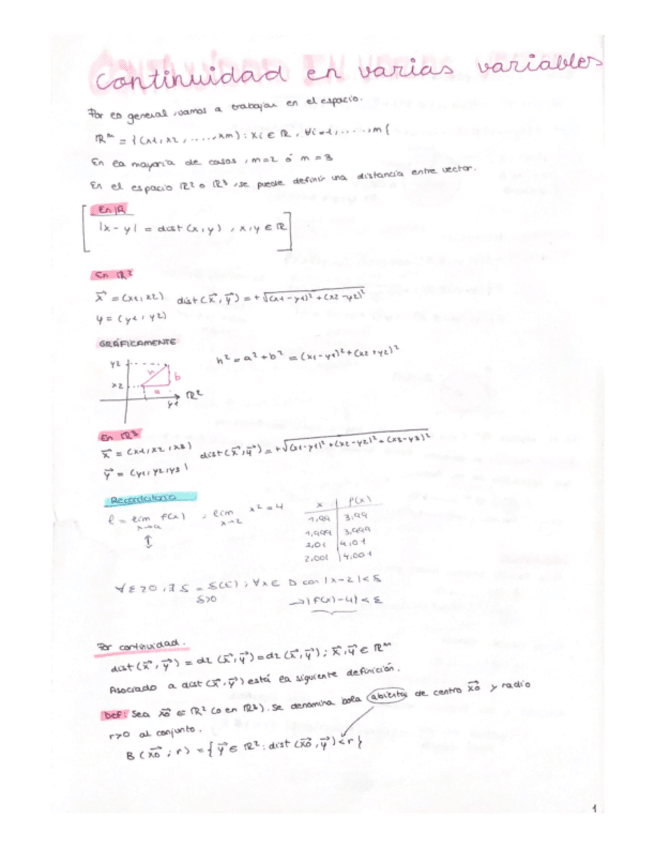 Continuidad en varias variables
Por lo general, vamos a trabajar en el espacio.
ℝᵐ = {(x1, x2, ....., xm) : xi ∈ ℝ, ∀i=1, ....., m{
En la mayoría de casos, m=2 ó m=3
En el espacio ℝ² o ℝ³, se puede definir una distancia entre vector.
En ℝ
|x - y| = dist (x, y) , x, y ∈ ℝ
En ℝ²
x⃗ = (x1, x2) dist (x⃗, y⃗) = +√(x1-y1)² + (x2-y2)²
y = (y1, y2)
GRÁFICAMENTE
h² = a² + b² = (x1-y1)² + (x2+y2)²
y2
h
b
x2
a
ℝ²
y1
En ℝ³
x⃗ = (x1, x2, x3) dist (x⃗, y⃗) = +√(x1-y1)² + (x2-y2)² + (x3-y3)²
y⃗ = (y1, y2, y3)
Recordatorio
ℓ = lim f(x) , lim x² = 4
x→a x→2
↕
x f(x)
1,99 3,99
1,999 3,999
2,01 4,01
2,001 4,001
∀ε>0, ∃δ = δ(ε) ; ∀x ∈ D con |x-2|<δ
δ>0 →|f(x)-4|<ε
Por continuidad.
dist (x⃗, y⃗) = d2 (x⃗, y⃗) = d2 (x⃗, y⃗) ; x⃗, y⃗ ∈ ℝᵐ
Asociado a dist (x⃗, y⃗) está la siguiente definición.
DEF: Sea x⃗0 ∈ ℝ² (o en ℝ³). Se denomina bola abierta de centro x⃗0 y radio
r>0 al conjunto.
B (x⃗0 ; r) = { y⃗ ∈ ℝ² : dist (x⃗0, y⃗) < r}
1